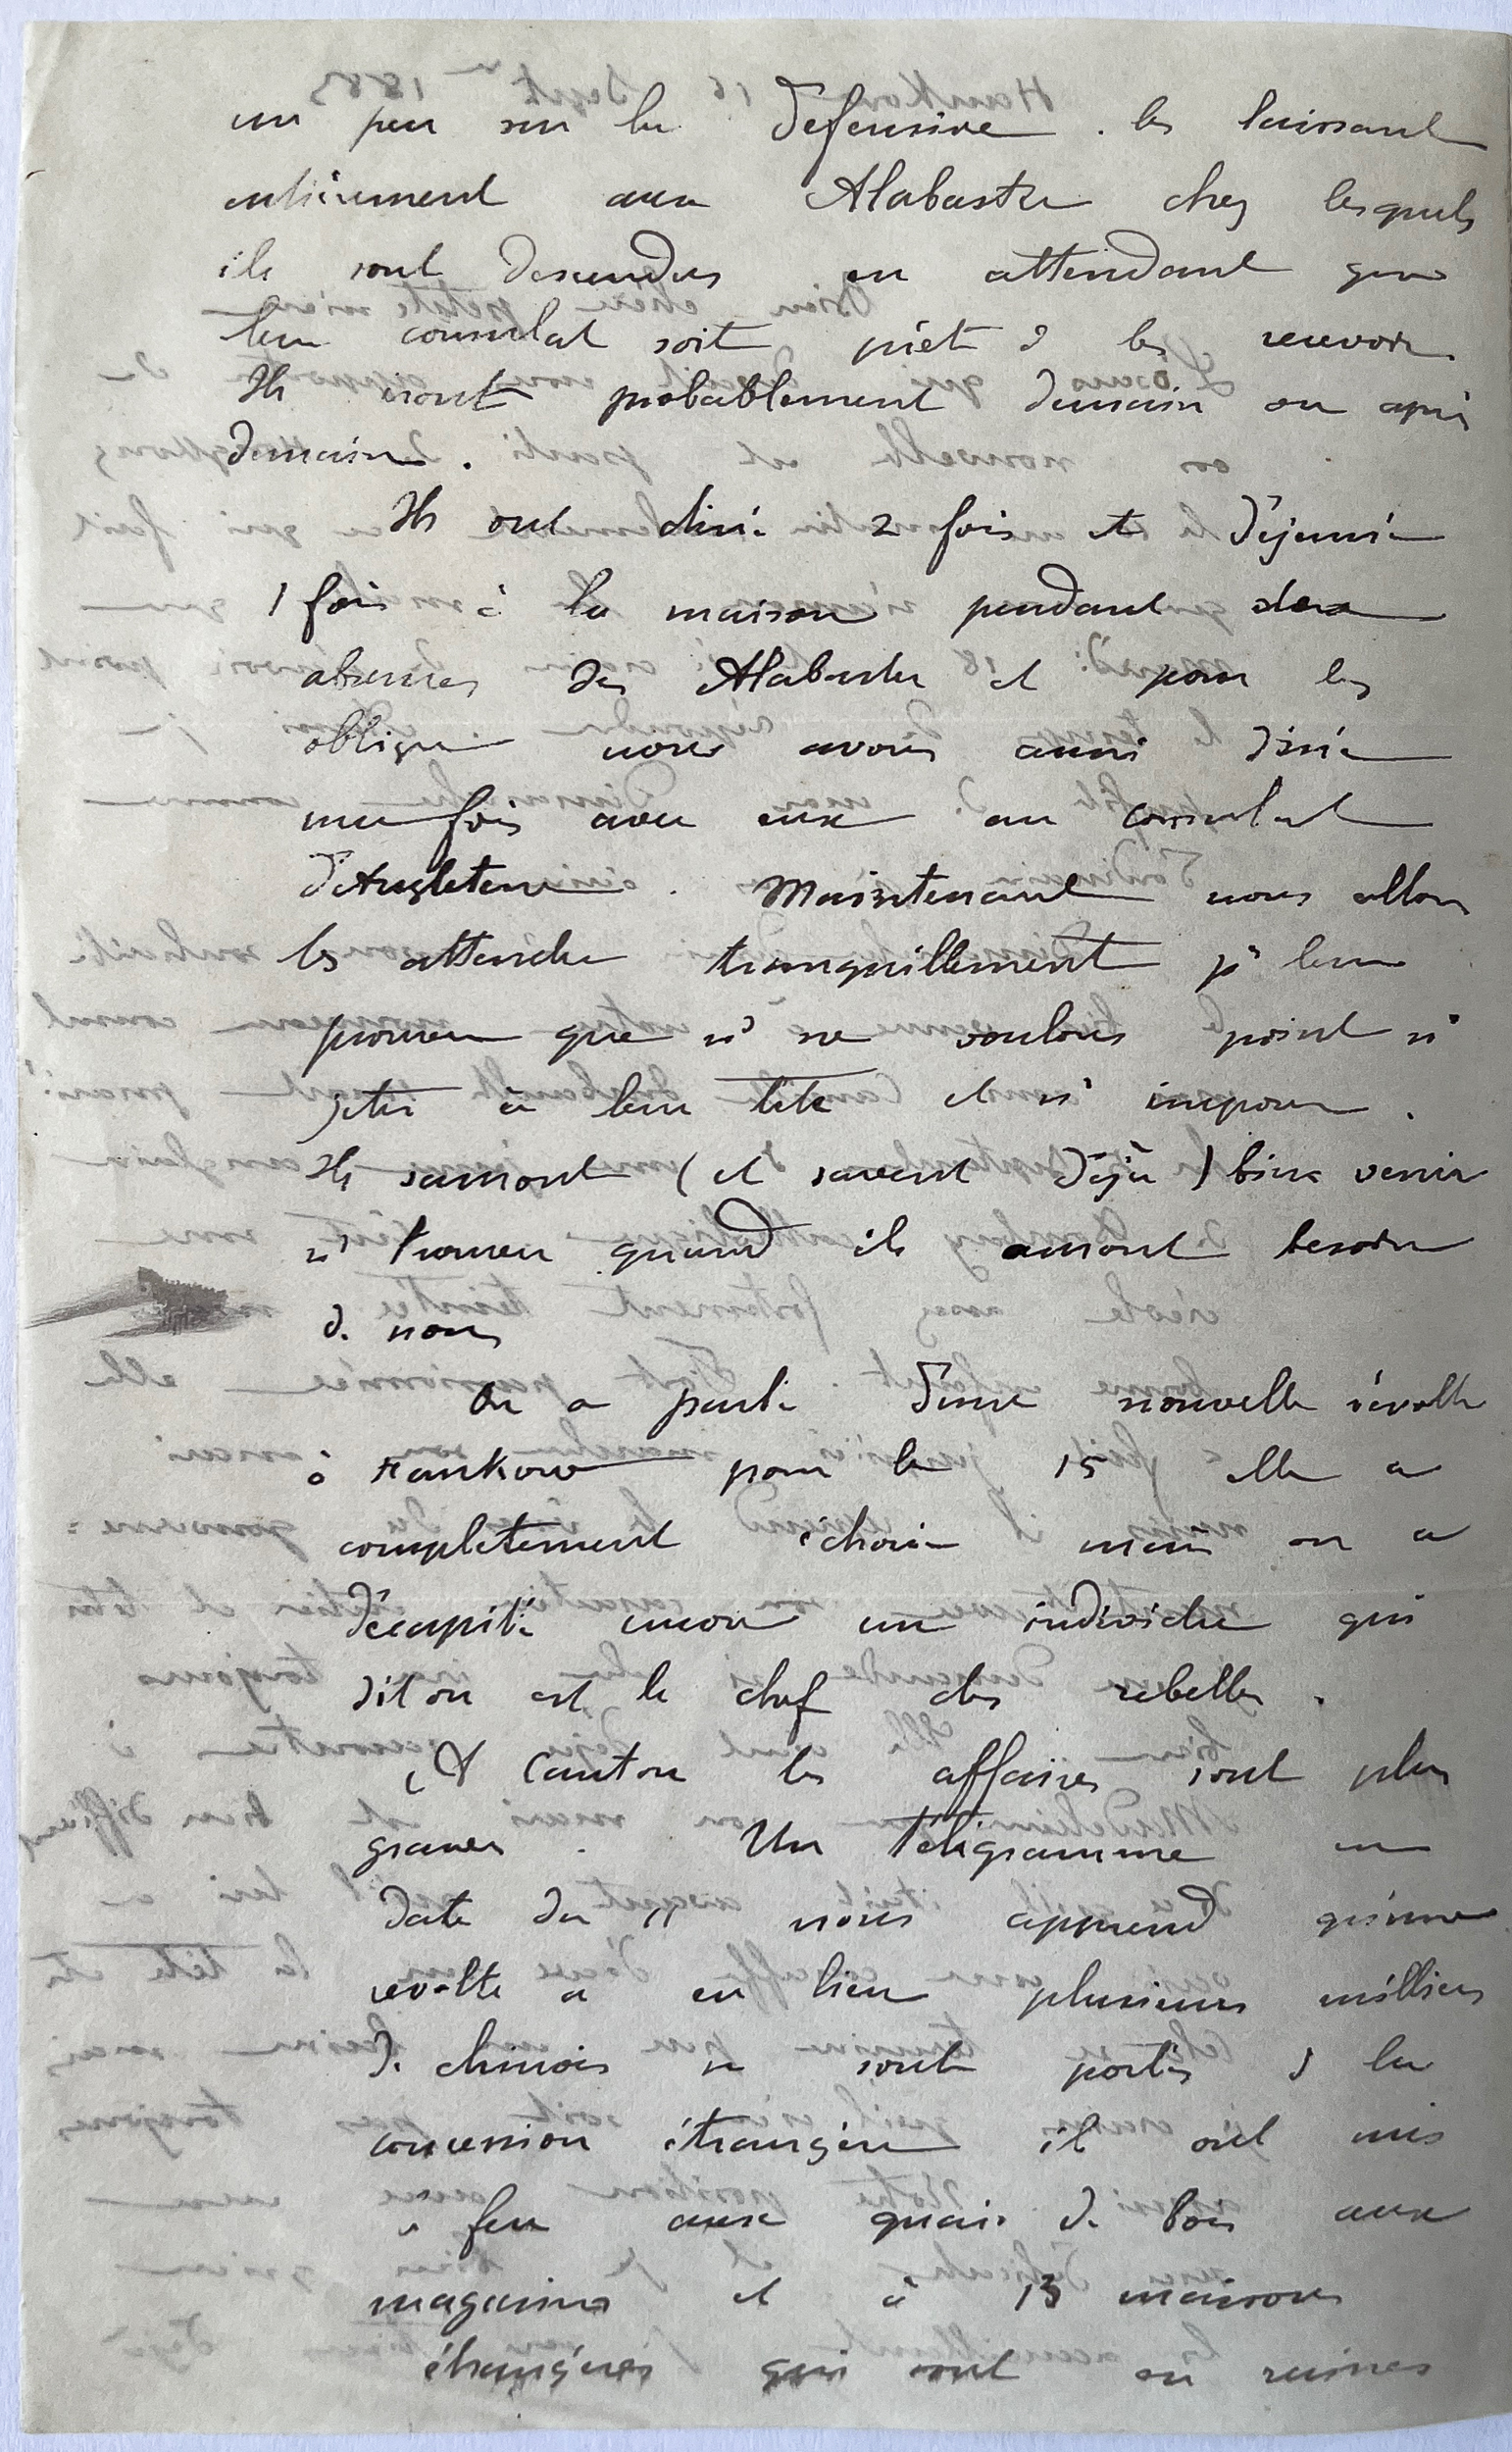 un peu sur la defensive . les laissant
entièrement aux Alabaster chez lesquels
ils sont descendus en attendant que
leur consulat soit prêt à les recevoir
Ils iront probablement demain ou après
demain .
Ils ont diné 2 fois et déjeuné
1 fois à la maison pendant
absences des Alabaster et pour les
obliger nous avons aussi diné
une fois avec eux au consulat
d'Angleterre . Maintenant nous allons
les attendre tranquillement pr leur
prouver que ns ne voulons point ns
jeter à leur tête et ns imposer .
Ils sauront (et savent déjà) bien venir
ns trouver quand ils auront besoin
de nous
On a parlé d'une nouvelle révolte
à Hankow pour le 15 elle a
completement échoué mais on a
décapité encore un individu qui
dit on est le chef des rebelles .
A Canton les affaires sont plus
graves . Un télégramme en
date du 11 nous apprend qu'une
revolte a eu lieu plusieurs milliers
de chinois se sont portés à la
concession étrangère il ont mis
le feu aux quais de bois aux
magasins et à 13 maisons
étrangères qui sont en ruines